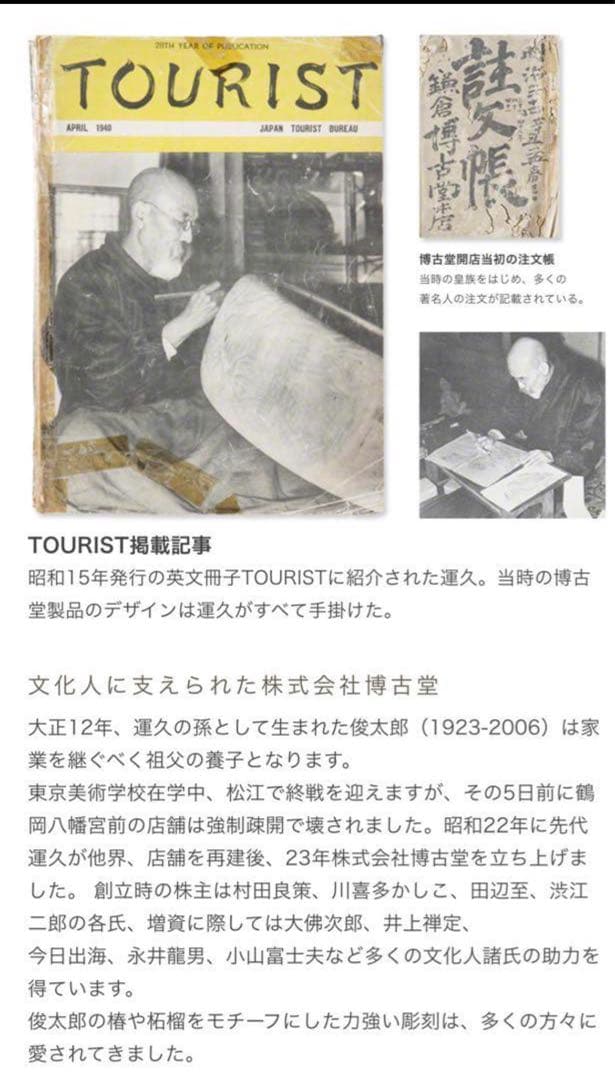 28TH YEAR OF PUBLICATION
TOURIST
APRIL 1940
JAPAN TOURIST BUREAU
註文帳
鎌倉博古堂本店
博古堂開店当初の注文帳
当時の皇族をはじめ、多くの
著名人の注文が記載されている。
TOURIST掲載記事
昭和15年発行の英文冊子TOURISTに紹介された運久。当時の博古
堂製品のデザインは運久がすべて手掛けた。
文化人に支えられた株式会社博古堂
大正12年、運久の孫として生まれた俊太郎（1923-2006）は家
業を継ぐべく祖父の養子となります。
東京美術学校在学中、松江で終戦を迎えますが、その5日前に鶴
岡八幡宮前の店舗は強制疎開で壊されました。昭和22年に先代
運久が他界、店舗を再建後、23年株式会社博古堂を立ち上げま
した。 創立時の株主は村田良策、川喜多かしこ、田辺至、渋江
二郎の各氏、増資に際しては大佛次郎、井上禅定、
今日出海、永井龍男、小山富士夫など多くの文化人諸氏の助力を
得ています。
俊太郎の椿や柘榴をモチーフにした力強い彫刻は、多くの方々に
愛されてきました。